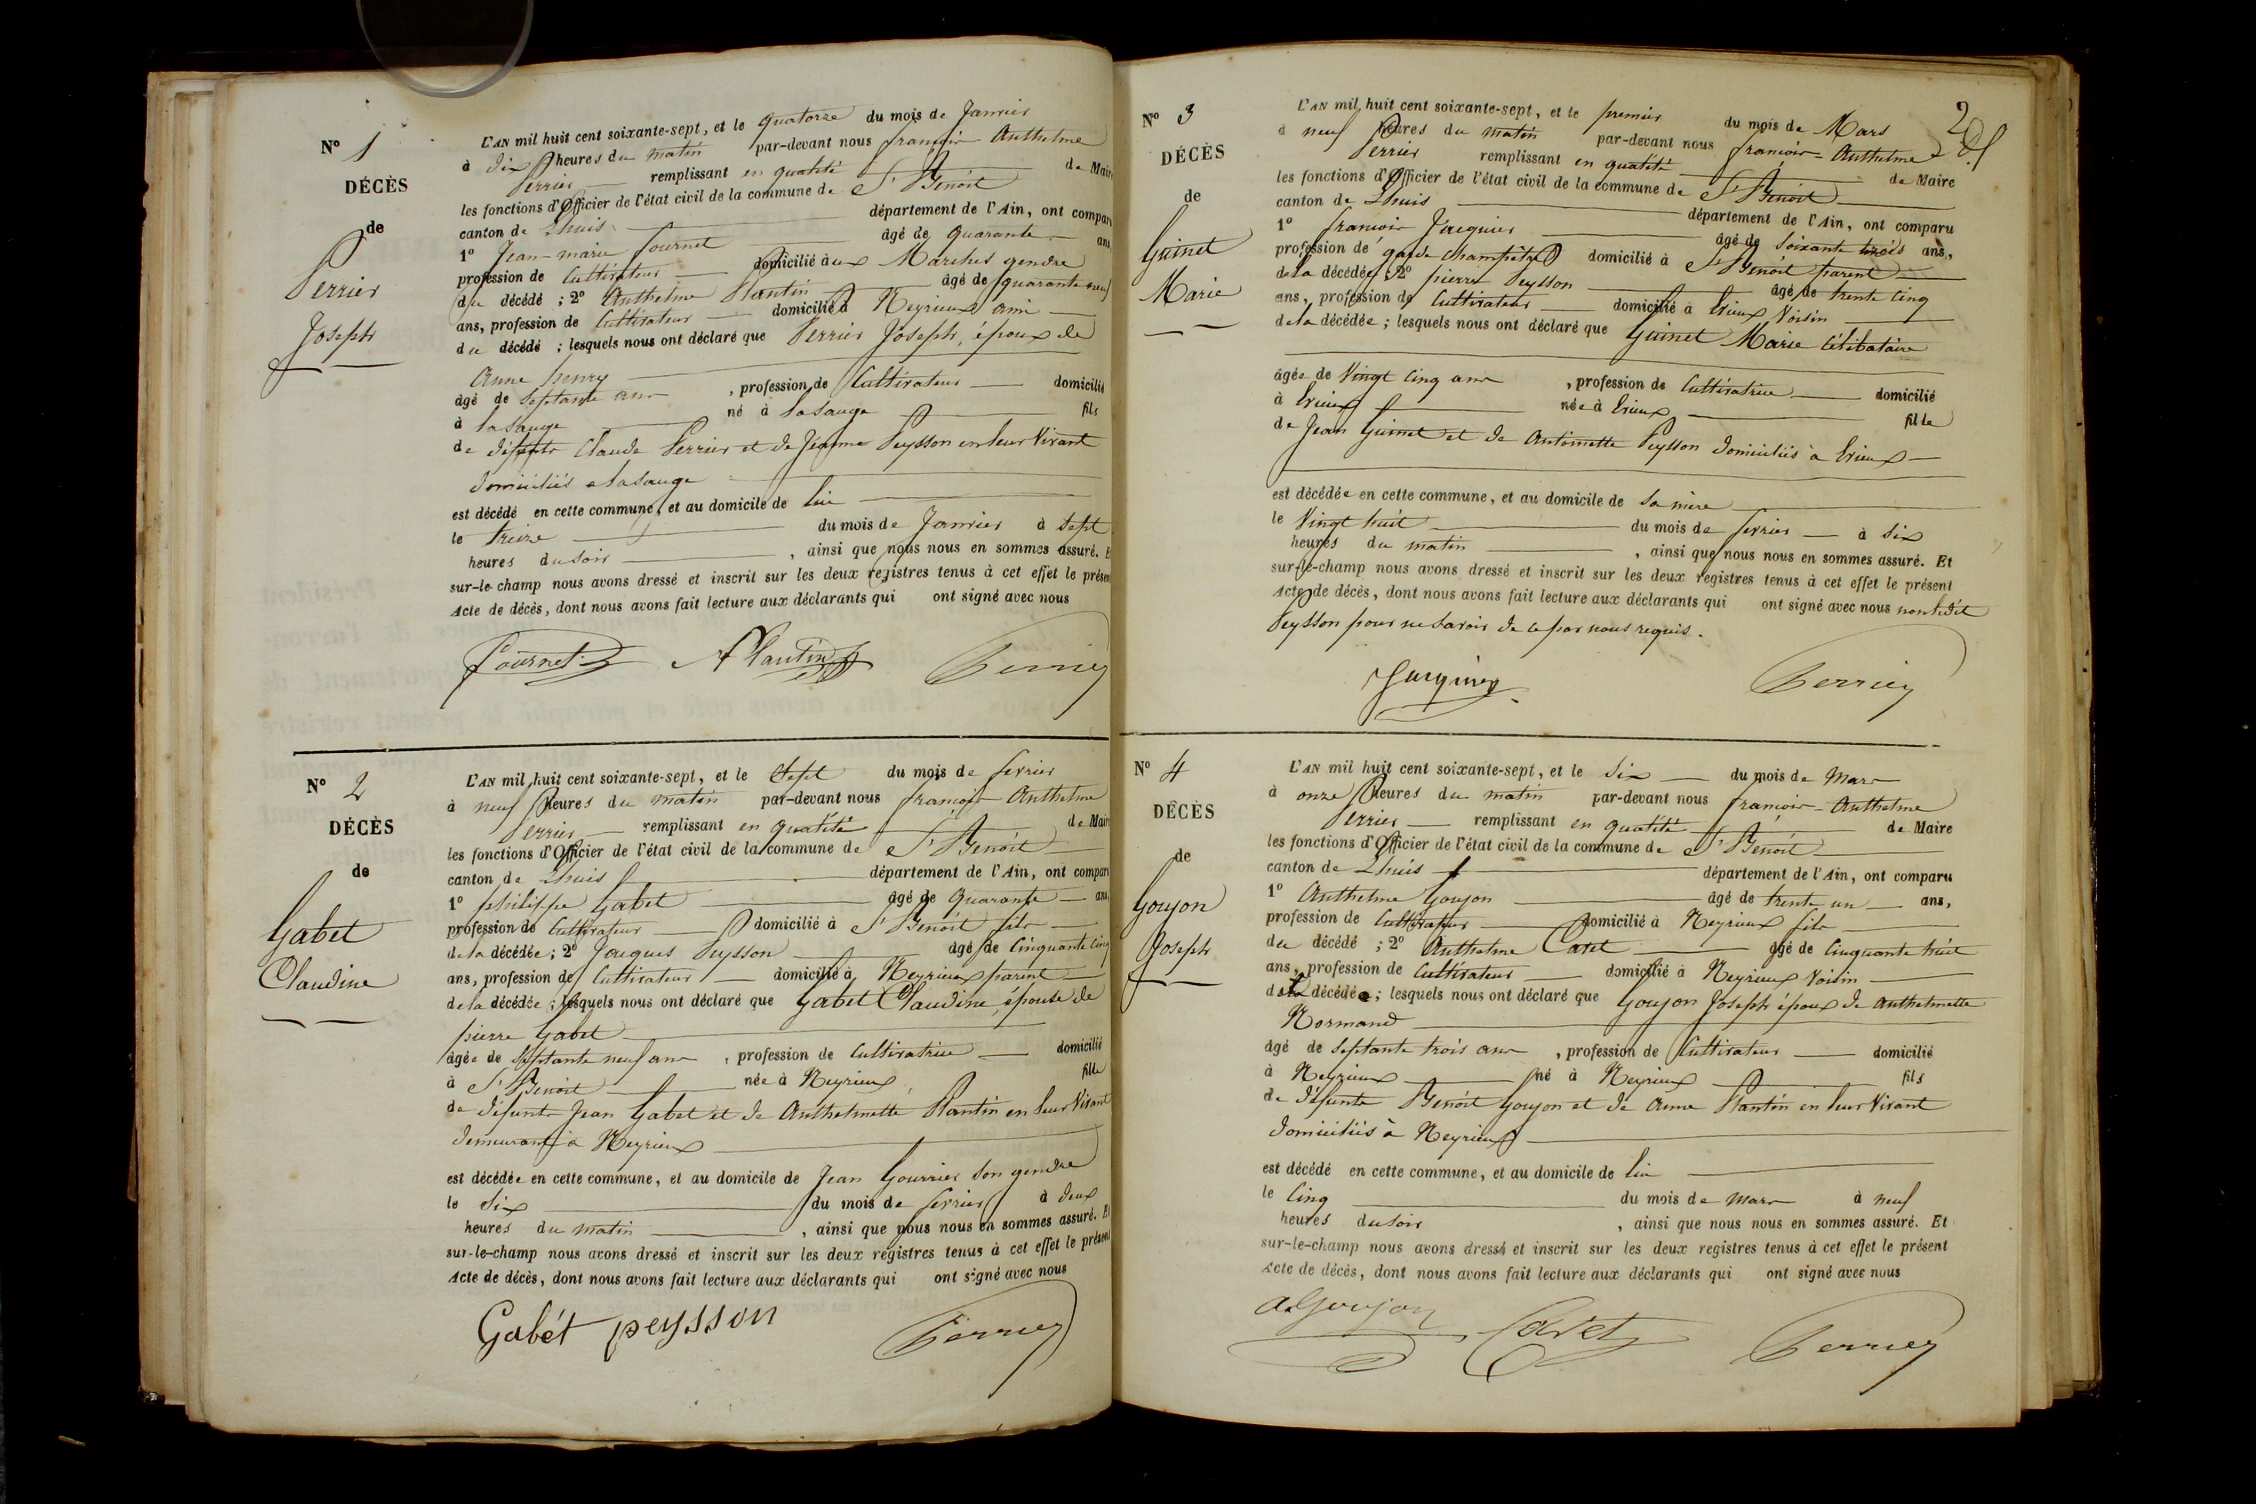 N° 1
DÉCÈS
de
Perrier
Joseph
L'AN mil huit cent soixante-sept, et le quatorze du mois de Janvier
à dix heures du matin par-devant nous françois Anthelme
Perrier remplissant en qualité de Maire
les fonctions d'Officier de l'état civil de la commune de St Benoit
canton de Lhuis département de l'Ain, ont comparu
1° Jean-marie fournet âgé de quarante ans
profession de Cultivateur domicilié aux Marches gendre
du décédé ; 2° Anthelme Plantin âgé de quarante neuf
ans, profession de Cultivateur domicilié à Neyrieux ami
du décédé ; lesquels nous ont déclaré que Perrier Joseph, époux de
Anne henry
âgé de septante ans , profession de Cultivateur domicilié
à la Sauge né à la Sauge fils
de défunts Claude Perrier et de Jeanne Peysson en leur vivant
domiciliés a la Sauge
est décédé en cette commune, et au domicile de lui
le treize du mois de Janvier à sept
heures du soir , ainsi que nous nous en sommes assuré. E
sur-le-champ nous avons dressé et inscrit sur les deux registres tenus à cet effet le présen
Acte de décès, dont nous avons fait lecture aux déclarants qui ont signé avec nous
fournet A Plantin Perrier
N° 2
DÉCÈS
de
Gabet
Claudine
L'AN mil huit cent soixante-sept, et le sept du mois de fevrier
à neuf heures du matin par-devant nous françois Anthelme
Perrier remplissant en qualité de Mair
les fonctions d'Officier de l'état civil de la commune de St Benoit
canton de Lhuis département de l'Ain, ont comparu
1° philippe Gabet âgé de quarante ans,
profession de Cultivateur domicilié à St Benoit fils
de la décédée ; 2° Jacques Peysson âgé de Cinquante cinq
ans, profession de Cultivateur domicilié à Neyrieux parent
de la décédée ; lesquels nous ont déclaré que Gabet Claudine, épouse de
pierre Gabet
âgée de septante neuf ans , profession de Cultivatrice domicilié
à St Benoit née à Neyrieux fille
de défunts Jean Gabet et de Anthelmette Plantin en leur vivant
demeurant à Neyrieux
est décédée en cette commune, et au domicile de Jean Gourrier son gendre
le six du mois de fevrier à deux
heures du matin , ainsi que nous nous en sommes assuré. Et
sur-le-champ nous avons dressé et inscrit sur les deux registres tenus à cet effet le présent
Acte de décès, dont nous avons fait lecture aux déclarants qui ont signé avec nous
Gabét peysson Perrier
2
N° 3
DÉCÈS
de
Guinet
Marie
L'AN mil huit cent soixante-sept, et le premier du mois de Mars
à neuf heures du matin par-devant nous françois-Anthelme
Perrier remplissant en qualité de Maire
les fonctions d'Officier de l'état civil de la commune de St Benoit
canton de Lhuis département de l'Ain, ont comparu
1° françois Jacquier âgé de soixante trois ans,
profession de garde champêtre domicilié à St Benoit parent
de la décédée ; 2° pierre Peysson âgé de trente cinq
ans, profession de Cultivateur domicilié à Crieux Voisin
de la décédée ; lesquels nous ont déclaré que Guinet Marie Célibataire
âgée de Vingt cinq ans , profession de Cultivatrice domicilié
à Crieux née à Crieux fille
de Jean Guinet et de Antoinette Peysson domiciliés à Crieux
est décédée en cette commune, et au domicile de sa mère
le Vingt huit du mois de fevrier à six
heures du matin , ainsi que nous nous en sommes assuré. Et
sur-le-champ nous avons dressé et inscrit sur les deux registres tenus à cet effet le présent
Acte de décès, dont nous avons fait lecture aux déclarants qui ont signé avec nous non ledit
Peysson pour ne savoir de ce par nous requis.
Jacquier Perrier
N° 4
DÉCÈS
de
Goujon
Joseph
L'AN mil huit cent soixante-sept, et le six du mois de Mars
à onze heures du matin par-devant nous françois-Anthelme
Perrier remplissant en qualité de Maire
les fonctions d'Officier de l'état civil de la commune de St Benoit
canton de Lhuis département de l'Ain, ont comparu
1° Anthelme Goujon âgé de trente un ans,
profession de Cultivateur domicilié à Neyrieux fils
du décédé ; 2° Anthelme Cavet âgé de cinquante huit
ans, profession de Cultivateur domicilié à Neyrieux Voisin
décédé ; lesquels nous ont déclaré que Goujon Joseph époux de Anthelmette
Normand
âgé de septante trois ans , profession de Cultivateur domicilié
à Neyrieux né à Neyrieux fils
de défunts Benoit Goujon et de Anne Plantin en leur vivant
domiciliés à Neyrieux
est décédé en cette commune, et au domicile de lui
le cinq du mois de mars à neuf
heures du soir , ainsi que nous nous en sommes assuré. Et
sur-le-champ nous avons dressé et inscrit sur les deux registres tenus à cet effet le présent
Acte de décès, dont nous avons fait lecture aux déclarants qui ont signé avec nous
A. Goujon Cavet Perrier